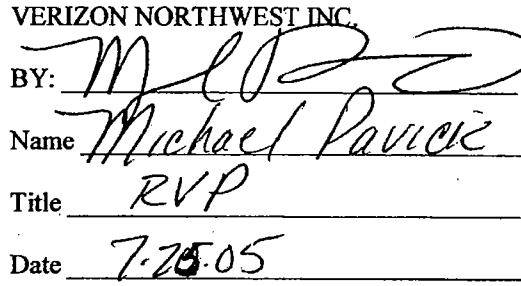 VERIZON NORTHWEST INC.
BY:
Name Michael Pavicic
Title RVP
Date 7.25.05